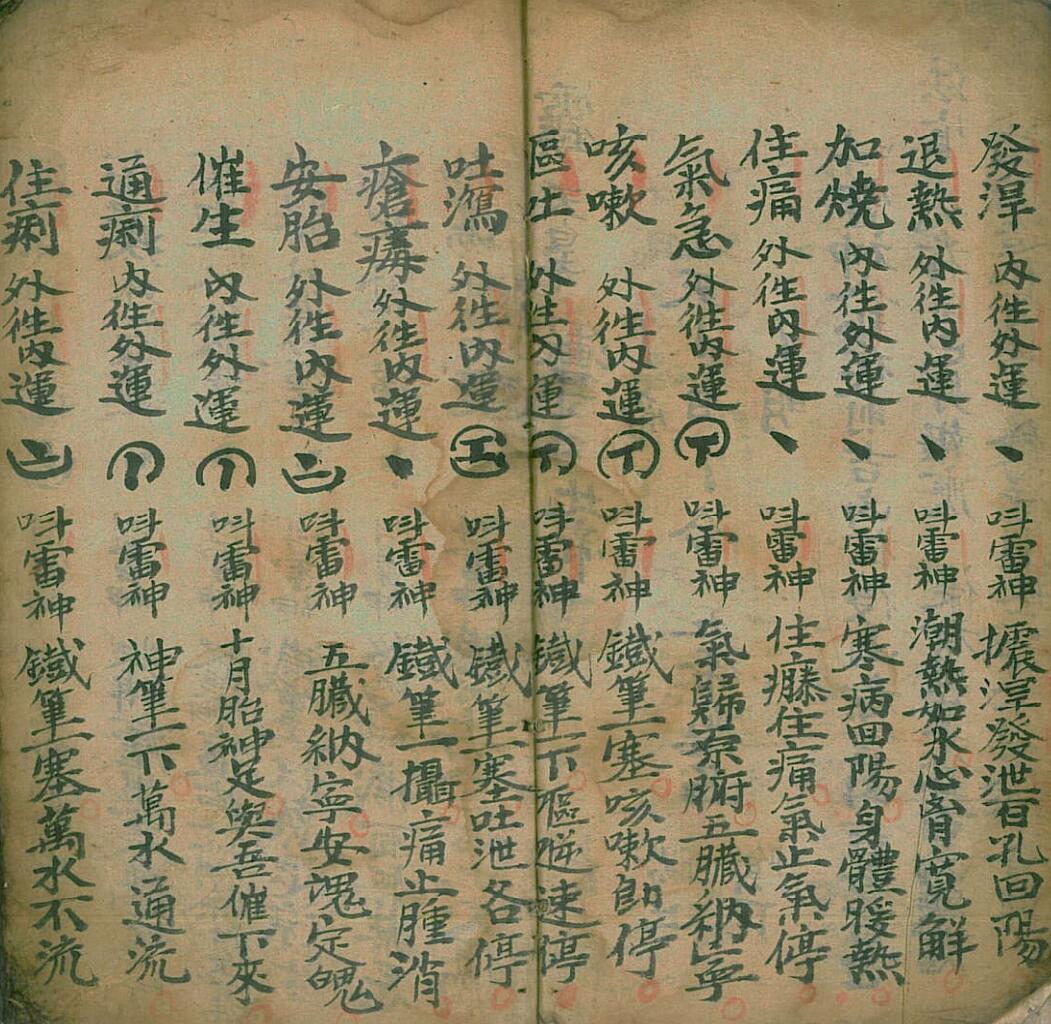 發浑 內徃外運 丶 呌雷神 擴浑發泄百孔回陽
退熱 外徃內運 丶 呌雷神 潮熱如水心胷寬解
加燒 內徃外運 丶 呌雷神 寒病回陽身體暖熱
住痛 外徃內運 丶 呌雷神 住癊住痛氣止氣停
氣急 外徃內運 下 呌雷神 氣歸原腑五臟納寧
咳嗽 外徃內運 下 呌雷神 鐵筆一塞咳嗽即停
區土 外徃內運 下 呌雷神 鐵筆一下嘔逆速停
吐瀉 外徃內運 工 呌雷神 鐵筆一塞吐泄各停
瘡毒 外徃內運 丶 呌雷神 鐵筆一攝痛止腫消
安胎 外徃內運 呌雷神 五臟納寧安魂定魄
催生 內徃外運 呌雷神 十月胎神足與吾催下來
通痢 內徃外運 呌雷神 神筆一下萬水通流
住痢 外徃內運 呌雷神 鐵筆一塞萬水不流